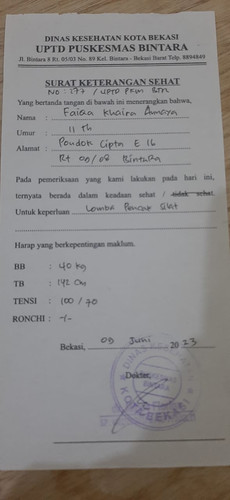 DINAS KESEHATAN KOTA BEKASI
UPTD PUSKESMAS BINTARA
Jl. Bintara 8 Rt. 05/03 No. 89 Kel. Bintara - Bekasi Barat Telp. 8894849
SURAT KETERANGAN SEHAT
NO : 177 / UPTD PKM BTR
Yang bertanda tangan di bawah ini menerangkan bahwa,
Nama : Faiza Khaira
Umur : 11 Th
Alamat : Pondok Cipta E 16
Rt 09/08 Bintara
Pada pemeriksaan yang kami lakukan pada hari ini,
ternyata berada dalam keadaan sehat / tidak sehat
Untuk keperluan : Lomba Pencak Silat
Harap yang berkepentingan maklum.
BB : 40 kg
TB : 142 cm
TENSI : 100 / 70
RONCHI : -/-
Bekasi, 09 Juni 2023
Dokter,
DINAS
BINTARA
KOTA BEKASI